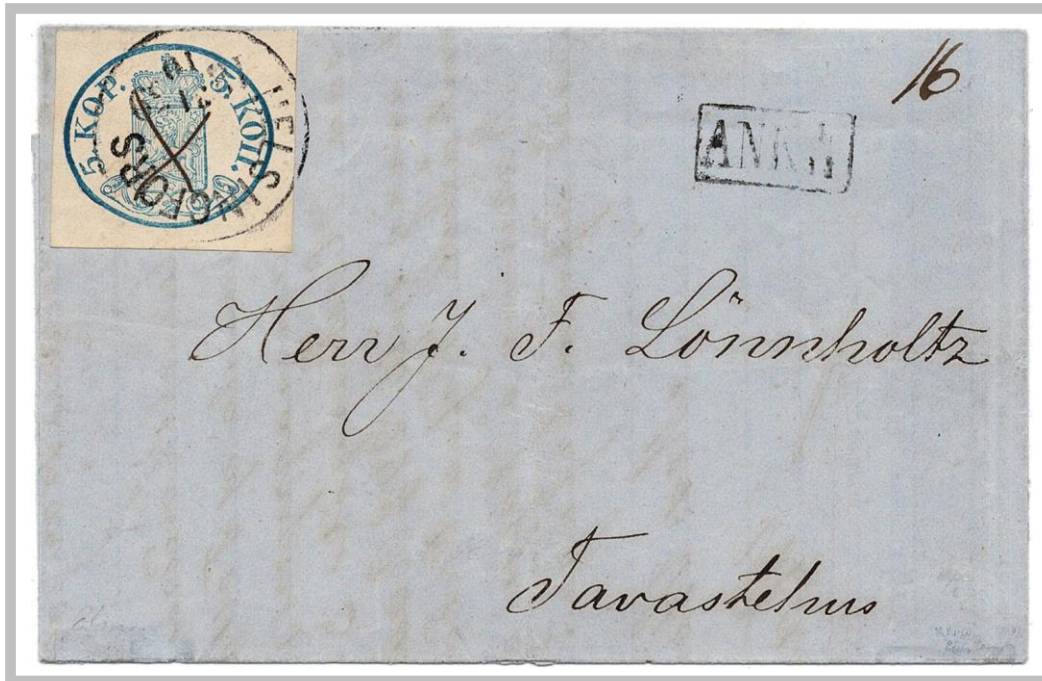 5.KOP. 5.КОП.
HELSINGFORS
16
ANK
Herr J. F. Lönnholtz
Tavastehus